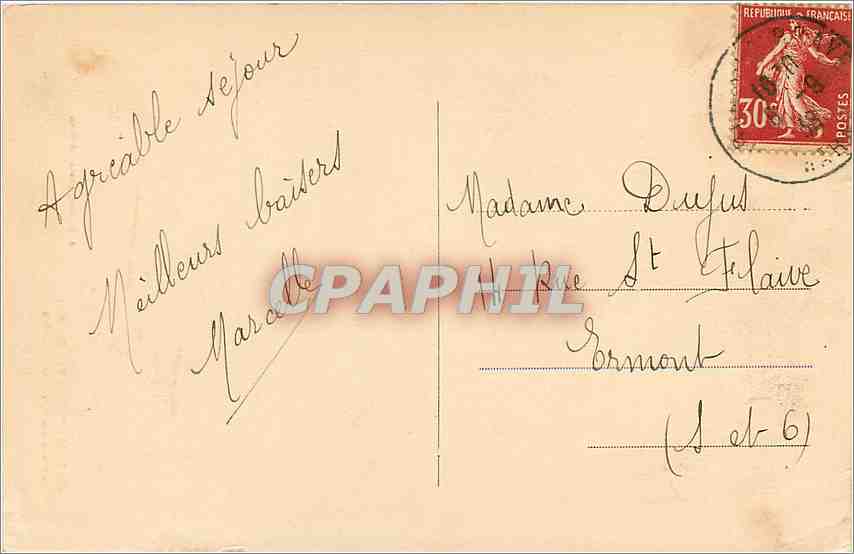 Agréable séjour
Meilleurs baisers
Marcelle
REPUBLIQUE FRANÇAISE
30c
POSTES
Madame Dufus
14 Rue St Flaive
Ermont
(S et O)
CPAPHIL